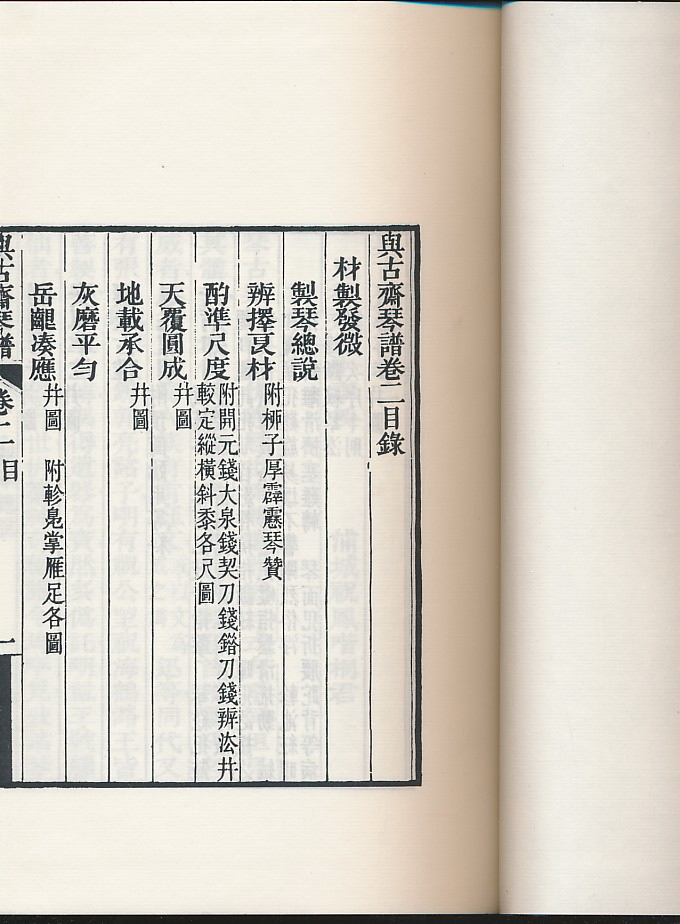 與古齋琴譜卷二目錄
材製發微
製琴總說
辨擇良材 附柳子厚霹靂琴贊
酌準尺度 附開元錢大泉錢契刀錢錯刀錢辨法并
較定縱橫斜黍各尺圖
天覆圓成 并圖
地載承合 并圖
灰磨平勻
岳齦湊應 并圖 附軫鳧掌雁足各圖
與古齋琴譜 卷二目 一